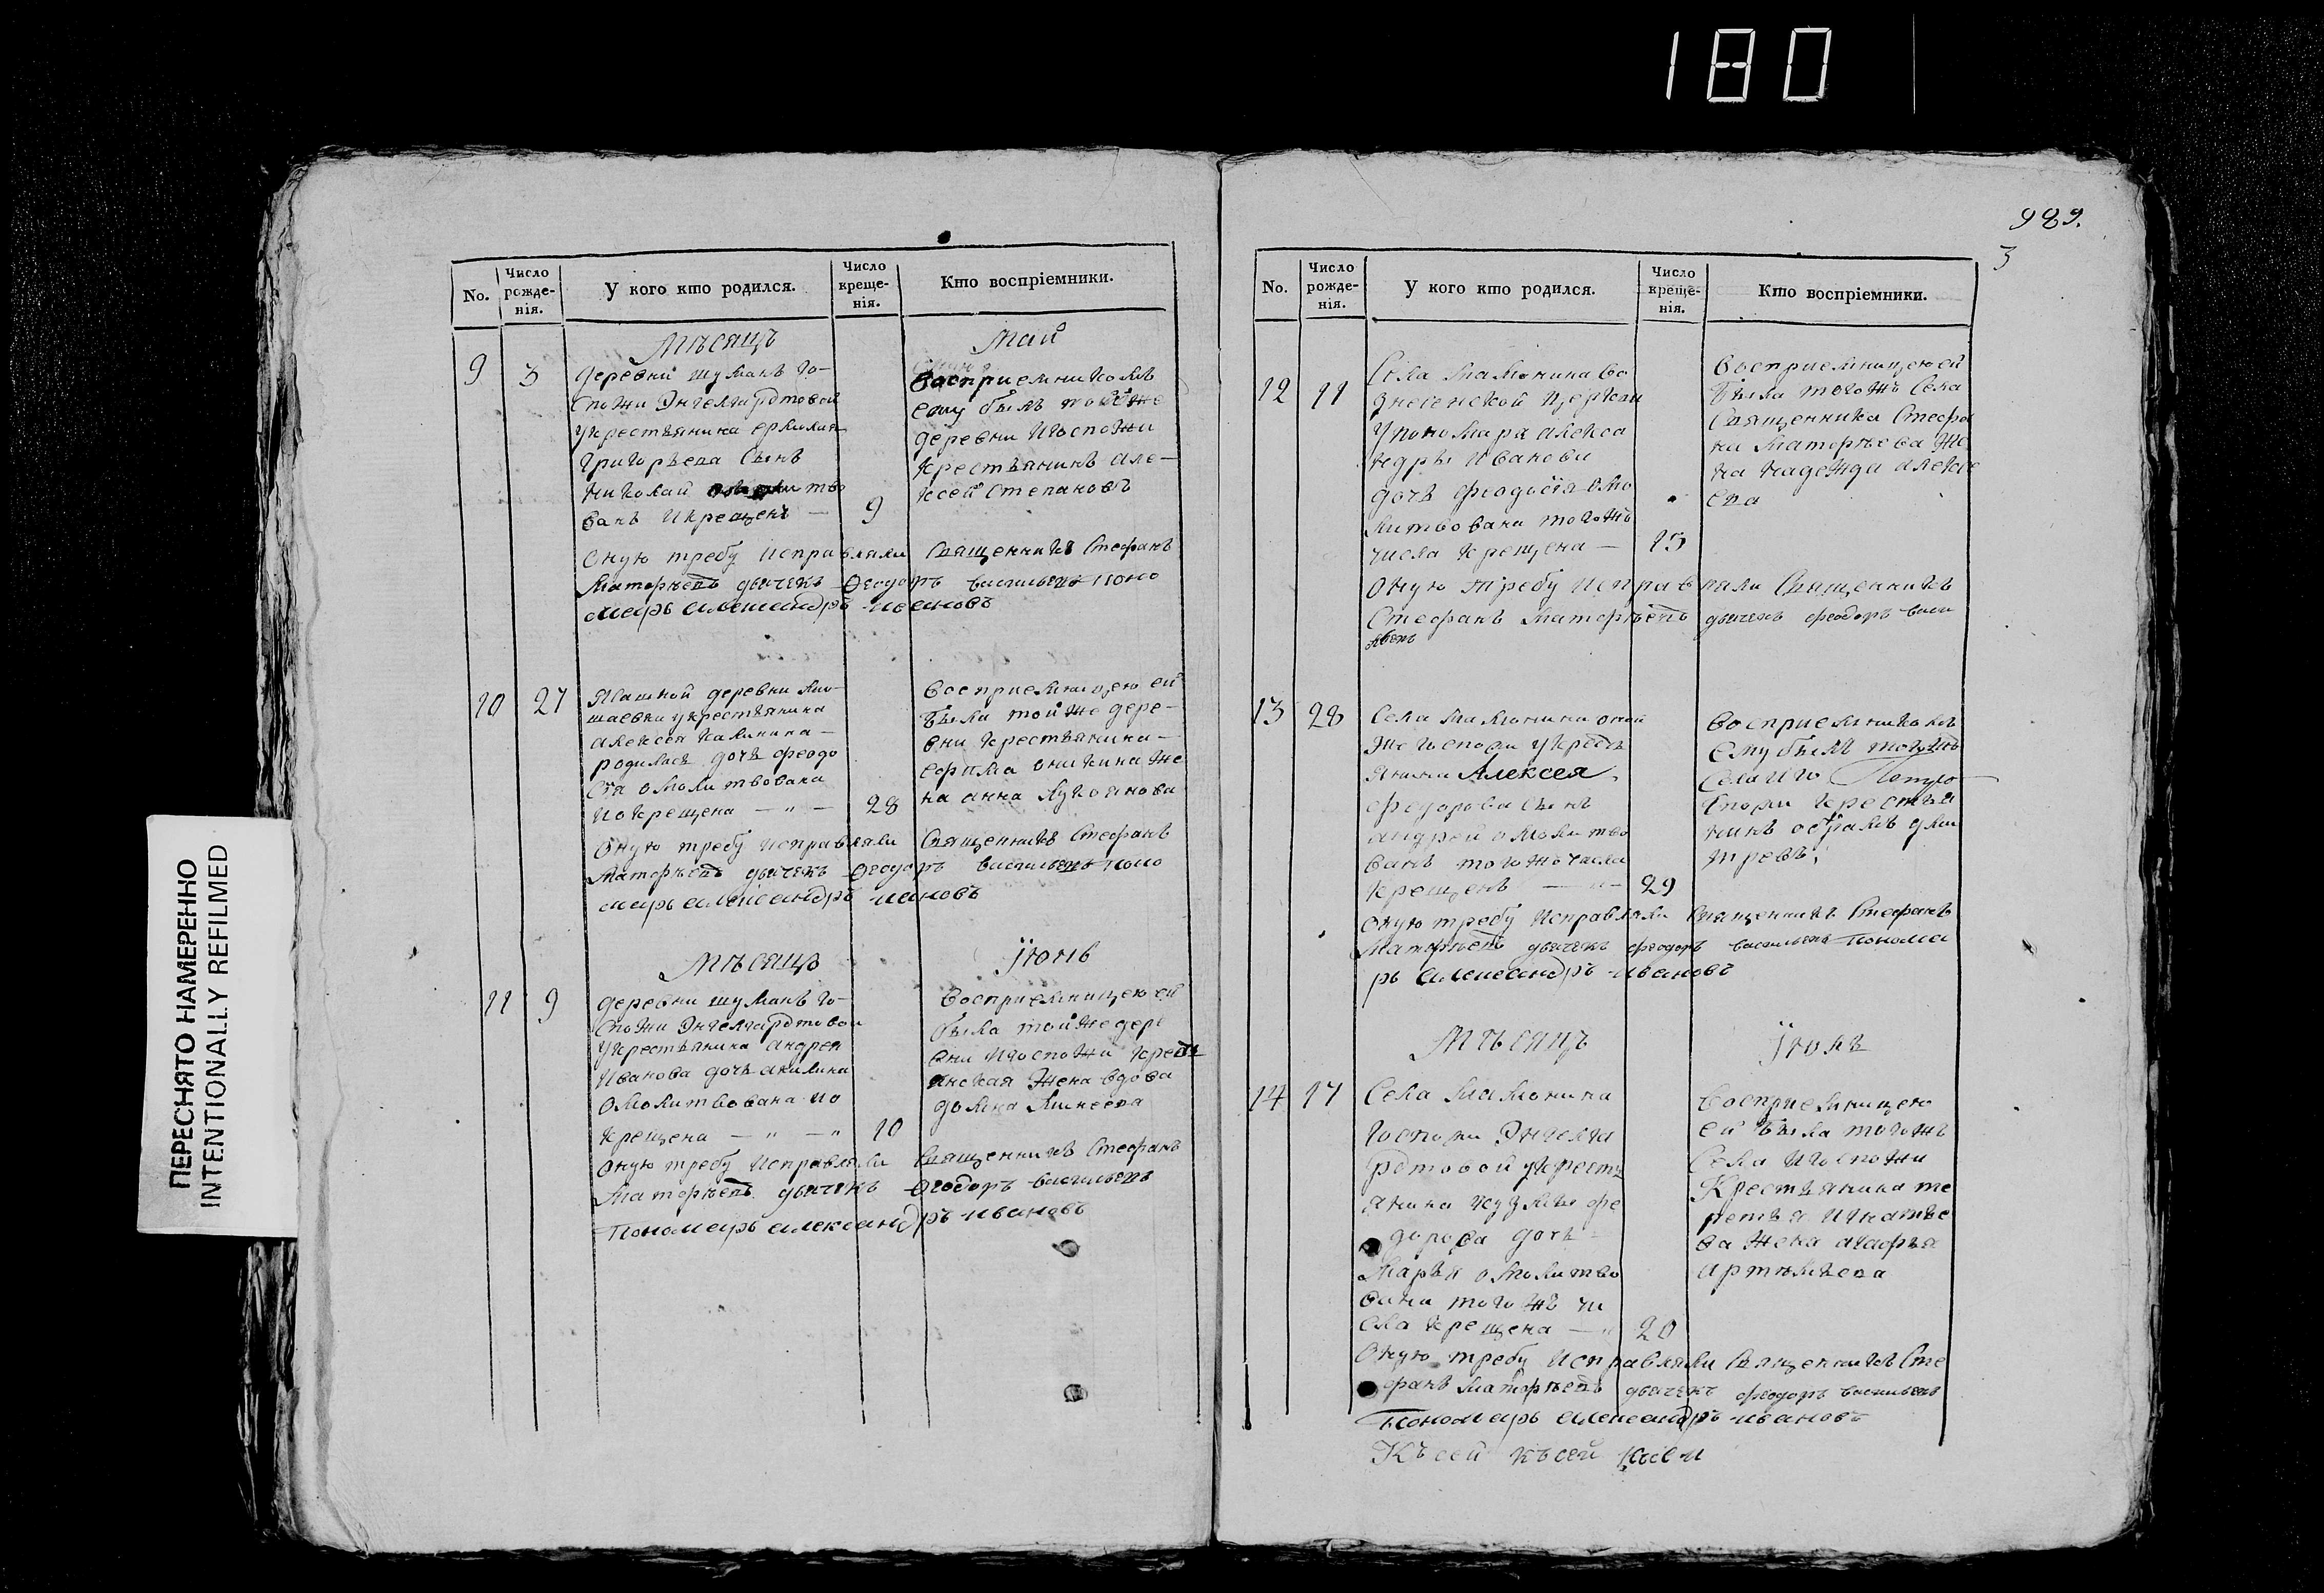 180
989.
3
ПЕРЕСНЯТО НАМЕРЕННО
INTENTIONALLY REFILMED
No.
Число рожде-нія.
У кого кто родился.
Число креще-нія.
Кто воспріемники.
Мѣсяцъ Май
9 3
деревни шуманъ го-
спожи Энгелгардтовой
укрестьянина
Григорьева Сынъ
Николай
ванъ Икрещенъ — 9
Восприемникомъ
ему былъ тоей же
деревни Игоспожи
крестьянинъ Але-
ксей Степановъ
Оную требу исправляли Священникъ Стефанъ
Матфѣевъ дьячекъ Ѳеодоръ васильевъ поно
марь александръ ивановъ
10 27
деревни
укрестьянина
алексея Калинина —
родилась дочь феодо
сія омолитвована
Иокрещена — „ — 28
Восприемницею ей
была тойже дере-
вни крестьянина —
же
на анна Лукоянова
Оную требу исправляли Священникъ Стефанъ
Матфѣевъ дьячекъ Ѳеодоръ васильевъ поно
марь александръ ивановъ
Мѣсяцъ Іюнь
11 9
деревни шуманъ го-
спожи Энгелгардтовой
Укрестьянина андрея
Иванова дочь акилина
Омолитвована ио
крещена — „ — „ 10
Восприемницею ей
была тойже дере
вни Игоспожи кресть
янская Жена вдова
домна
Оную требу Исправляли Священникъ Стефанъ
Матфѣевъ дьячекъ Ѳеодоръ васильевъ
Пономарь александръ ивановъ
No.
Число рожде-нія.
У кого кто родился.
Число креще-нія.
Кто воспріемники.
12 11
Села Мамонина Во
знесенской Церкви
Упономаря алекса
ндры Иванова
дочь феодосія омо
литвована тогожъ
числа крещена — 15
Восприемницею ей
была тогожъ Села
Священника Стефа
на Матфѣева Же
на надежда алексе
ева
Оную требу исправляли Священникъ
Стефанъ Матфѣевъ дьячекъ феодоръ васи
льевъ
13 28
Села Мамонина оной
Же госпожи укресть
янина Алексея
федорова сынъ
андрей омолитво
ванъ тогожъ числа
крещенъ — „ — 29
восприемникомъ
ему былъ тогожъ
Села
крестья
нинъ
Оную требу Исправляли Священникъ Стефанъ
Матфѣевъ дьячекъ феодоръ васильевъ понома
рь александръ ивановъ
Мѣсяцъ Іюль
14 17
Села Мамонина
Госпожи Энгелга
рдтовой укресть
янина кузмы фе
дорова дочь
Марья омолитво
вана тогожъ чи
сла крещена — „ 20
Восприемницею
ей была тогожъ
Села Игоспожи
Крестьянина те
рентья Игнатье
ва жена агафья
артемьева
Оную требу исправляли Священникъ Сте
фанъ Матфѣевъ дьячекъ феодоръ васильевъ
Пономарь александръ ивановъ
Къ сей къ сей